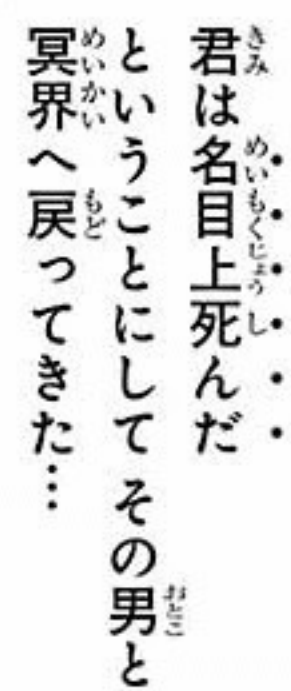 君は名目上死んだ
ということにして その男と
冥界へ戻ってきた…